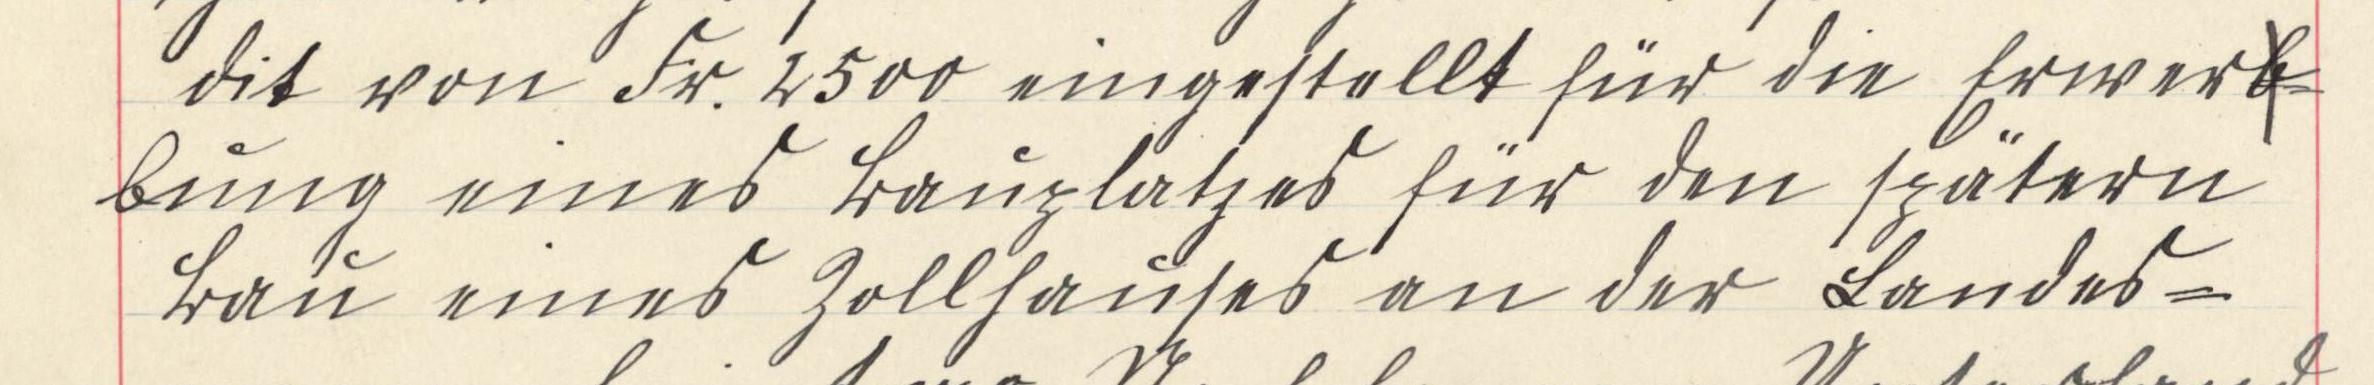 dit von Fr. 2500 eingestellt für die Erwer-
bung eines Bauplatzes für den spätern
Bau eines Zollhauses an der Landes=